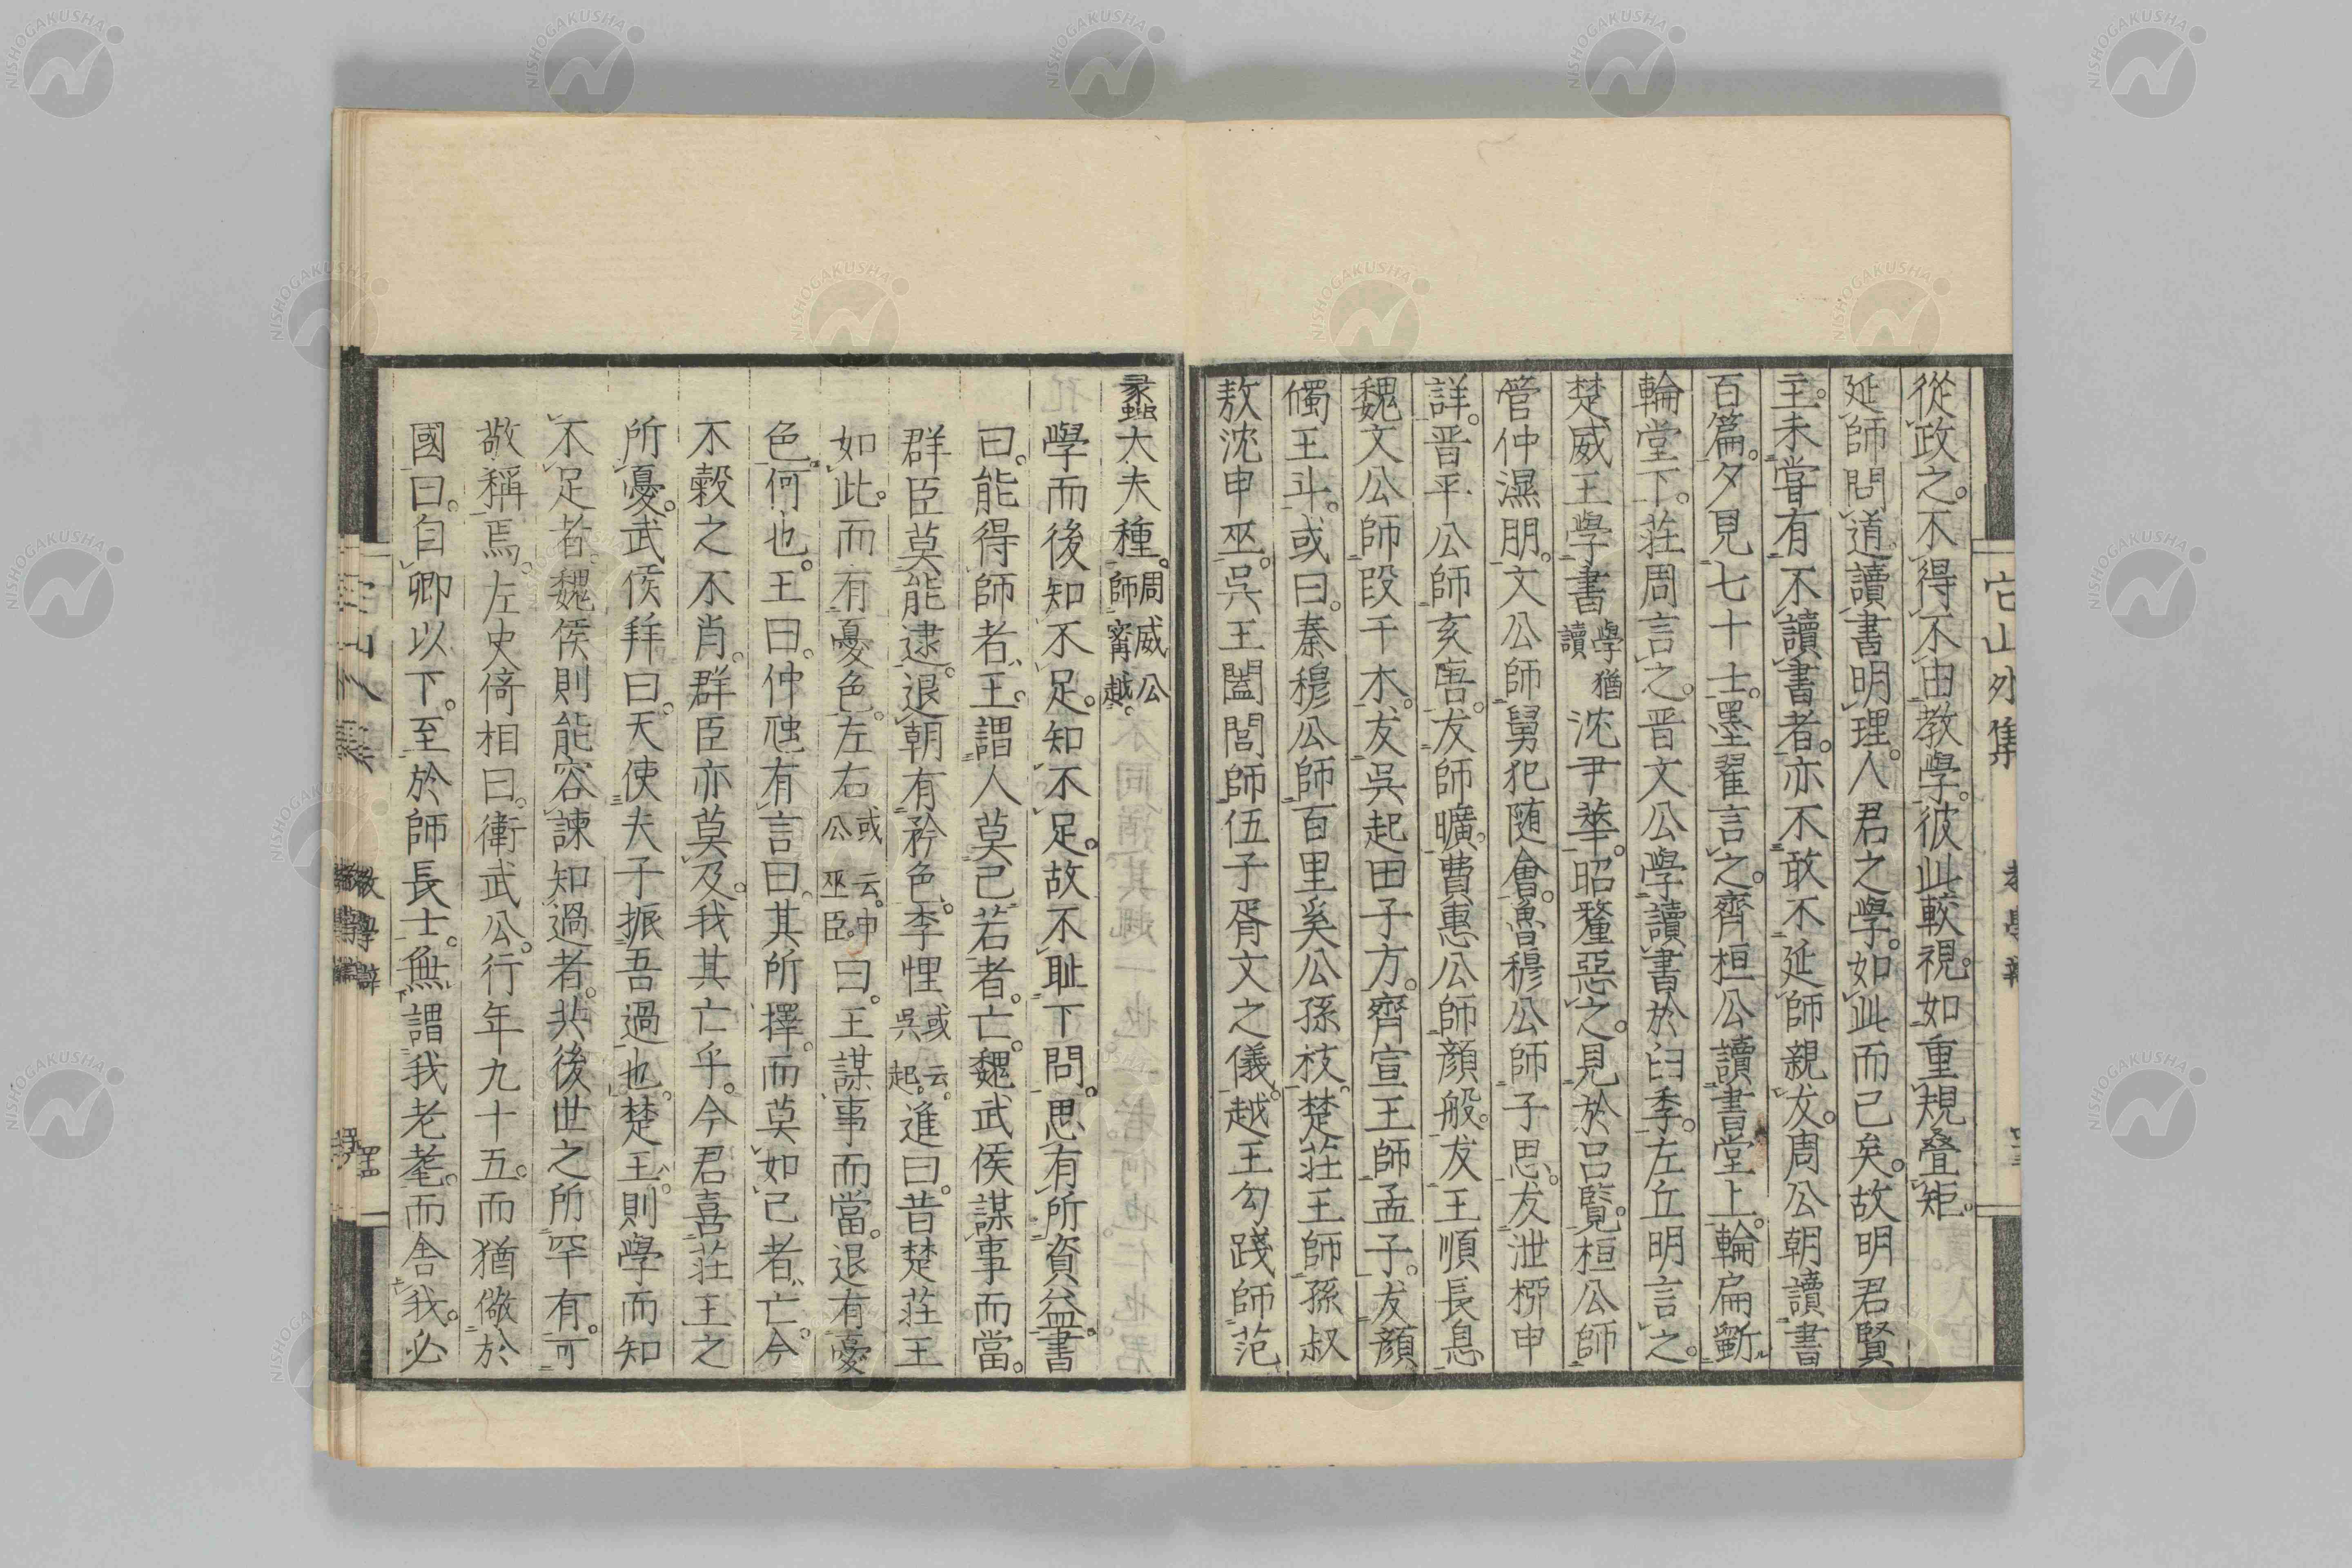 它山外集
從政之。不得不由教學。彼此較視。如重規疊矩。
延師問道。讀書明理。人君之學。如此而已矣。故明君賢
主。未嘗有不讀書者。亦不敢不延師親友。周公朝讀書
百篇。夕見七十士。墨翟言之。齊桓公讀書堂上。輪扁斲
輪堂下。莊周言之。晋文公學讀書於臼季。左丘明言之。
楚威王學書學猶讀沈尹華。昭釐惡之。見於呂覽。桓公師
管仲濕朋。文公師舅犯隨會。魯穆公師子思。友泄柳申
詳。晋平公師亥唐。友師曠。費惠公師顏般。友王順長息
魏文公師段干木。友吳起田子方。齊宣王師孟子。友顏
斶王斗。或曰。秦穆公師百里奚公孫枝。楚莊王師孫叔
敖沈申巫。吳王闔閭師伍子胥文之儀。越王勾踐師范
蠡大夫種。周威公師甯越。
學而後知不足。知不足。故不耻下問。思有所資益。書
曰。能得師者、王。謂人莫己若者。亡。魏武侯謀事而當。
群臣莫能逮。退朝有矜色。李悝或云吳起。進曰。昔楚莊王
如此。而有憂色。左右或云。申公巫臣。曰。王謀事而當。退有憂
色。何也。王曰。仲虺有言曰。其所擇。而莫如己者、亡。今
不穀之不肖。群臣亦莫及。我其亡乎。今君喜莊王之
所憂。武侯拜曰。天使夫子振吾過也。楚王。則學而知
不足者。魏侯則能容諫知過者。共後世之所罕有。可
敬稱焉。左史倚相曰。衛武公。行年九十五。而猶儆於
國曰。自卿以下。至於師長士。無謂我老耄。而舍我。必
NISHOGAKUSHA